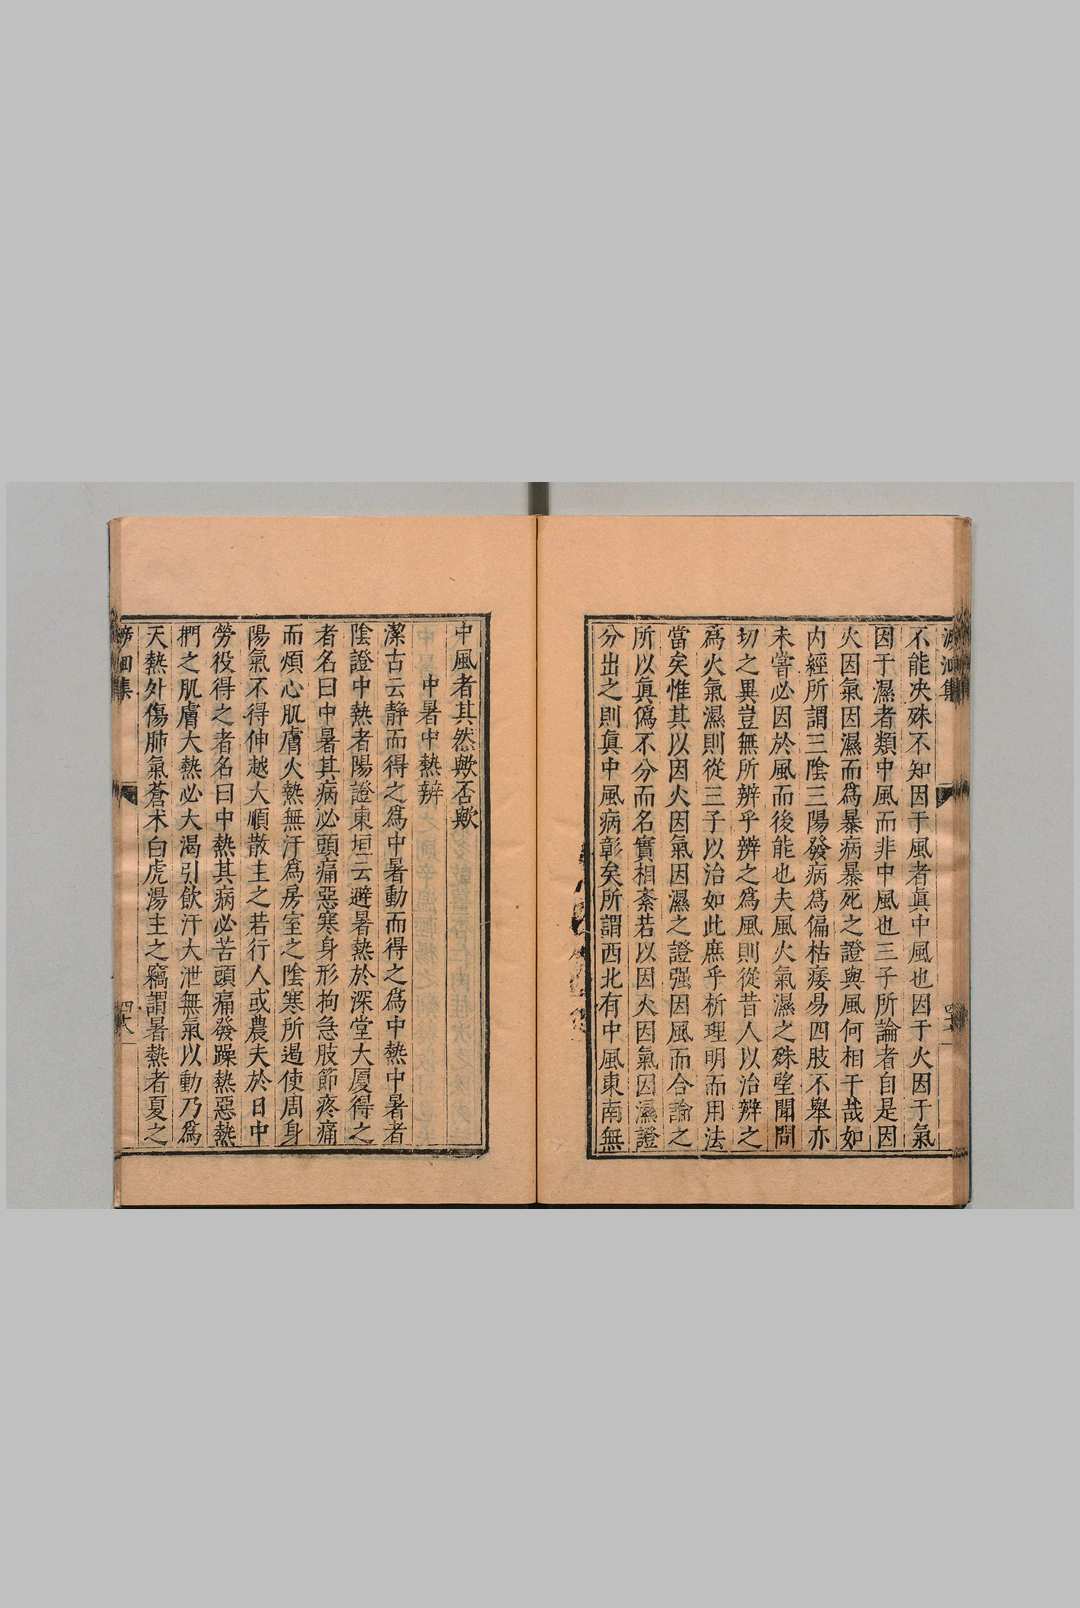 不能决殊不知因于風者真中風也因于火因于氣
因于濕者類中風而非中風也三子所論者自是因
火因氣因濕而為暴病暴死之證與風何相干哉如
内經所謂三陰三陽發病為偏枯痿易四肢不舉亦
未甞必因於風而後能也夫風火氣濕之殊望聞問
切之異豈無所辨乎辨之為風則從昔人以治辨之
為火氣濕則從三子以治如此庶乎析理明而用法
當矣惟其以因火因氣因濕之證强因風而合論之
所以眞僞不分而名實相紊若以因火因氣因濕證
分出之則眞中風病彰矣所謂西北有中風東南無
中風者其然歟否歟
中暑中熱辨
潔古云静而得之為中暑動而得之為中熱中暑者
陰證中熱者陽證東垣云避暑熱於深堂大厦得之
者名曰中暑其病必頭痛惡寒身形拘急肢節疼痛
而煩心肌膚火熱無汗為房室之陰寒所遏使周身
陽氣不得伸越大順散主之若行人或農夫於日中
勞役得之者名曰中熱其病必苦頭痛發躁熱惡熱
捫之肌膚大熱必大渴引飲汗大泄無氣以動乃為
天熱外傷肺氣蒼术白虎湯主之竊謂暑熱者夏之
泝洄集
四十六